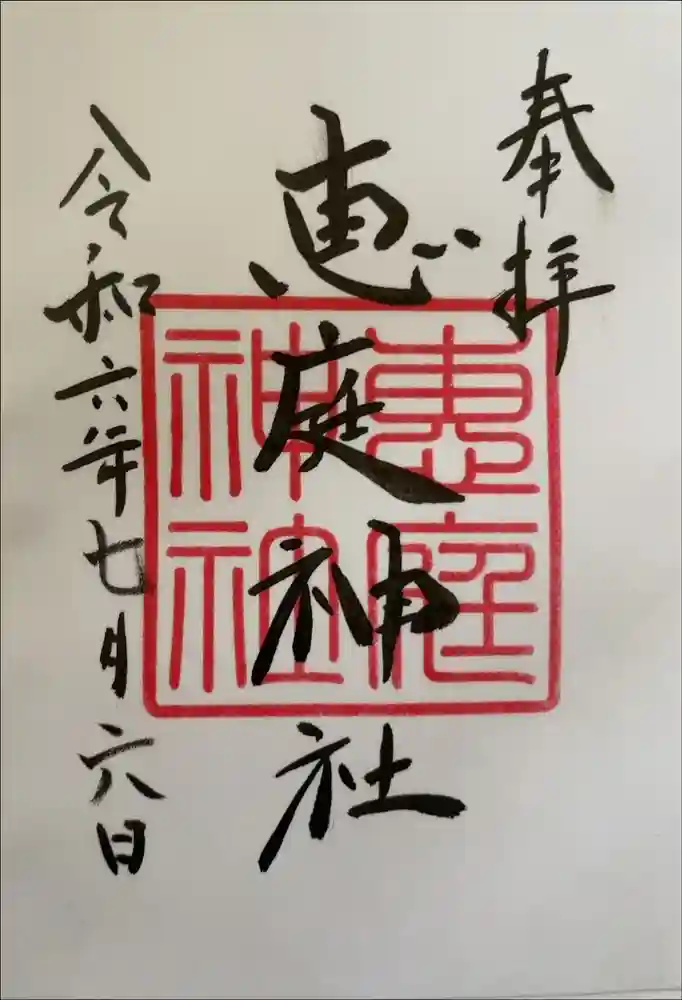 奉拝
恵庭神社
恵庭
神社
令和六年七月六日